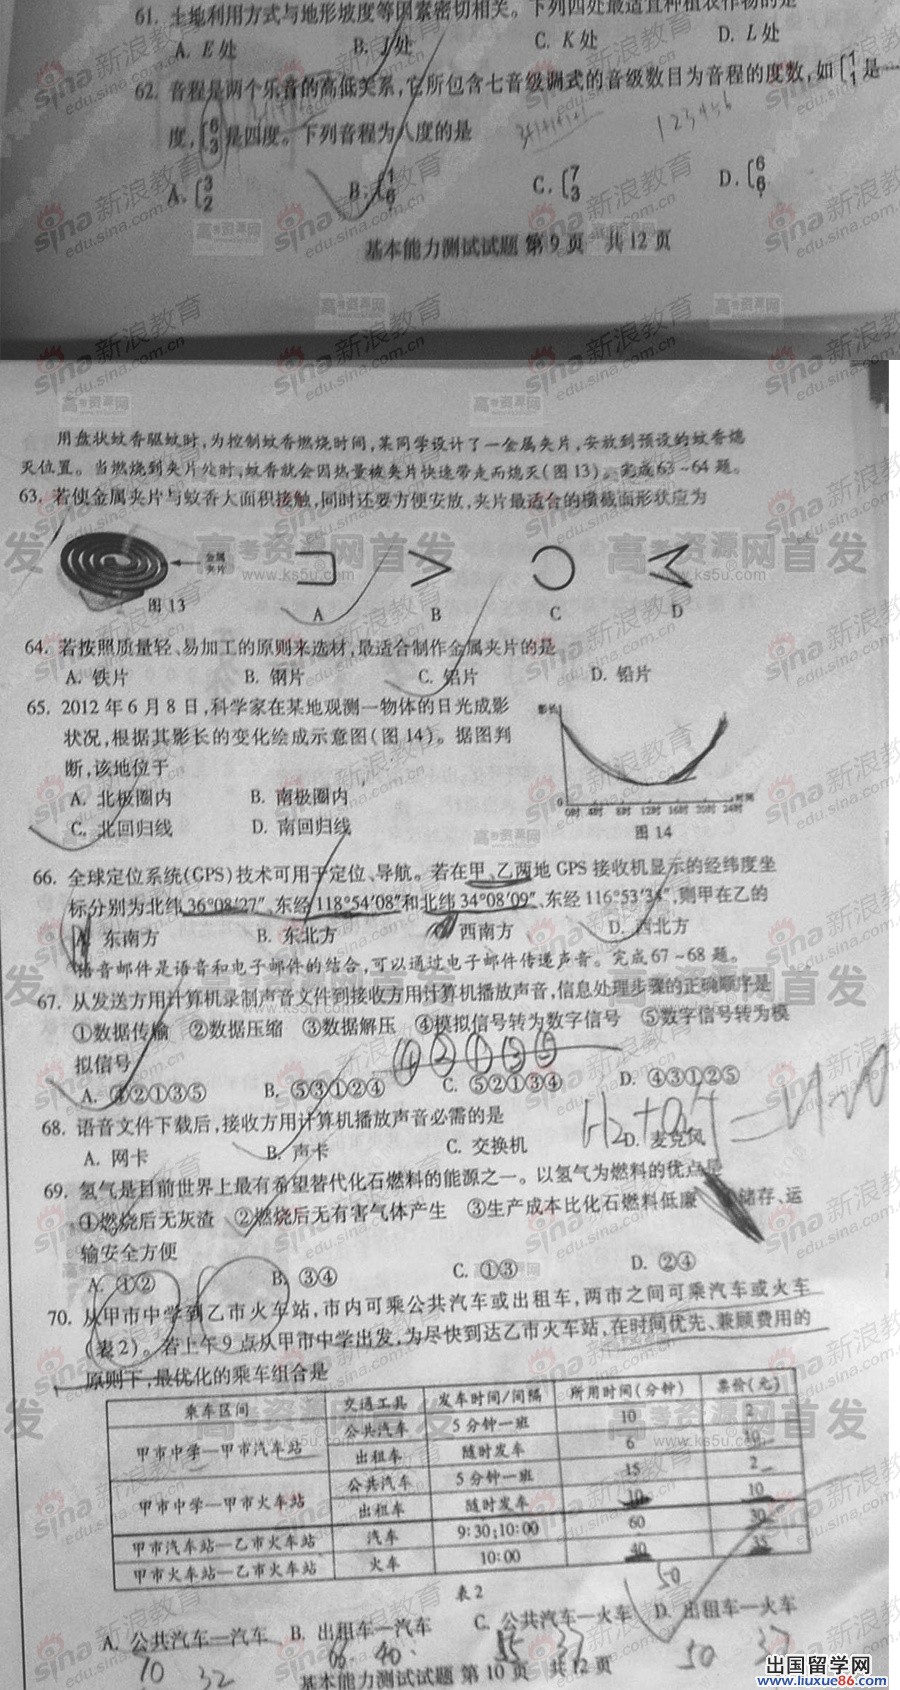 61. 土地利用方式与地形坡度等因素密切相关。下列四处最适宜种植农作物的是
A. E处 B. J处 C. K处 D. L处
62. 音程是两个乐音的高低关系,它所包含七音级调式的音级数目为音程的度数,如[1 1是一
度,[6 3是四度。下列音程为八度的是
A.[3 2 B.[1 6 C.[7 3 D.[6 6
123456
基本能力测试试题 第9页 共12页
用盘状蚊香驱蚊时,为控制蚊香燃烧时间,某同学设计了一金属夹片,安放到预设的蚊香熄
灭位置。当燃烧到夹片处时,蚊香就会因热量被夹片快速带走而熄灭(图13)。完成63~64题。
63. 若使金属夹片与蚊香大面积接触,同时还要方便安放,夹片最适合的横截面形状应为
金属
夹片
图13
A B C D
64. 若按照质量轻、易加工的原则来选材,最适合制作金属夹片的是
A. 铁片 B. 钢片 C. 铝片 D. 铅片
65. 2012年6月8日,科学家在某地观测一物体的日光成影
状况,根据其影长的变化绘成示意图(图14)。据图判
断,该地位于
A. 北极圈内 B. 南极圈内
C. 北回归线 D. 南回归线
影长
0
0时 4时 8时 12时 16时 20时 24时 时间
图14
66. 全球定位系统(GPS)技术可用于定位、导航。若在甲、乙两地GPS接收机显示的经纬度坐
标分别为北纬36°08′27″、东经118°54′08″和北纬34°08′09″、东经116°53′34″,则甲在乙的
A. 东南方 B. 东北方 C. 西南方 D. 西北方
语音邮件是语音和电子邮件的结合,可以通过电子邮件传递声音。完成67~68题。
67. 从发送方用计算机录制声音文件到接收方用计算机播放声音,信息处理步骤的正确顺序是
①数据传输 ②数据压缩 ③数据解压 ④模拟信号转为数字信号 ⑤数字信号转为模
拟信号
④②①③⑤
A. ④②①③⑤ B. ⑤③①②④ C. ⑤②①③④ D. ④③①②⑤
68. 语音文件下载后,接收方用计算机播放声音必需的是
A. 网卡 B. 声卡 C. 交换机 D. 麦克风
69. 氢气是目前世界上最有希望替代化石燃料的能源之一。以氢气为燃料的优点是
①燃烧后无灰渣 ②燃烧后无有害气体产生 ③生产成本比化石燃料低廉 ④储存、运
输安全方便
A. ①② B. ③④ C. ①③ D. ②④
70. 从甲市中学到乙市火车站,市内可乘公共汽车或出租车,两市之间可乘汽车或火车
(表2)。若上午9点从甲市中学出发,为尽快到达乙市火车站,在时间优先、兼顾费用的
原则下,最优化的乘车组合是
乘车区间 交通工具 发车时间/间隔 所用时间(分钟) 票价(元)
甲市中学—甲市汽车站 公共汽车 5分钟一班 10 2
出租车 随时发车 6 10
甲市中学—甲市火车站 公共汽车 5分钟一班 15 2
出租车 随时发车 10 10
甲市汽车站—乙市火车站 汽车 9:30;10:00 60 30
甲市火车站—乙市火车站 火车 10:00 40 35
50
表2
A. 公共汽车—汽车 B. 出租车—汽车 C. 公共汽车—火车 D. 出租车—火车
70 32 40 55 37 50 37
基本能力测试试题 第10页 共12页
sina新浪教育
edu.sina.com.cn
高考资源网首发
www.ks5u.com
出国留学网
www.liuxue86.com